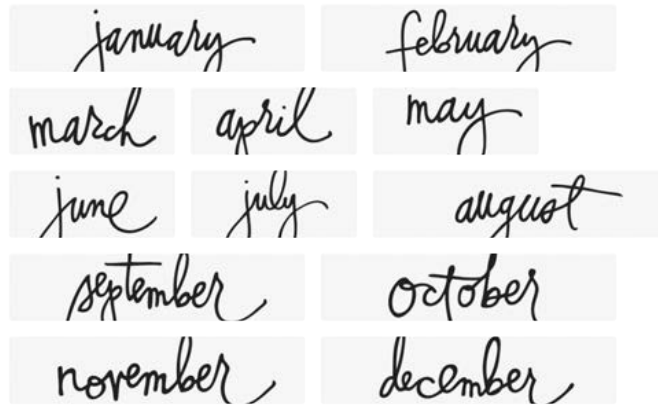 january february
march april may
june july august
september october
november december